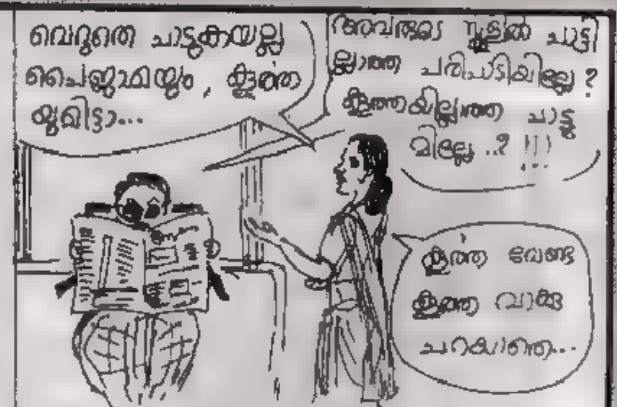 വെറുതെ ചാട്ടുകയല്ല
പൈജാമയും, കൂത്ത
യുമിട്ടാ...
അവരുടെ സ്കൂളിൽ ചാട്ടി
ല്ലാത്ത പരിപാടിയില്ലേ?
കൂത്തയില്ലാത്ത ചാട്ടു
മില്ലേ ..? !!!
കൂത്ത വേണ്ട
കൂത്ത വാക്കു
പറയാതെ...